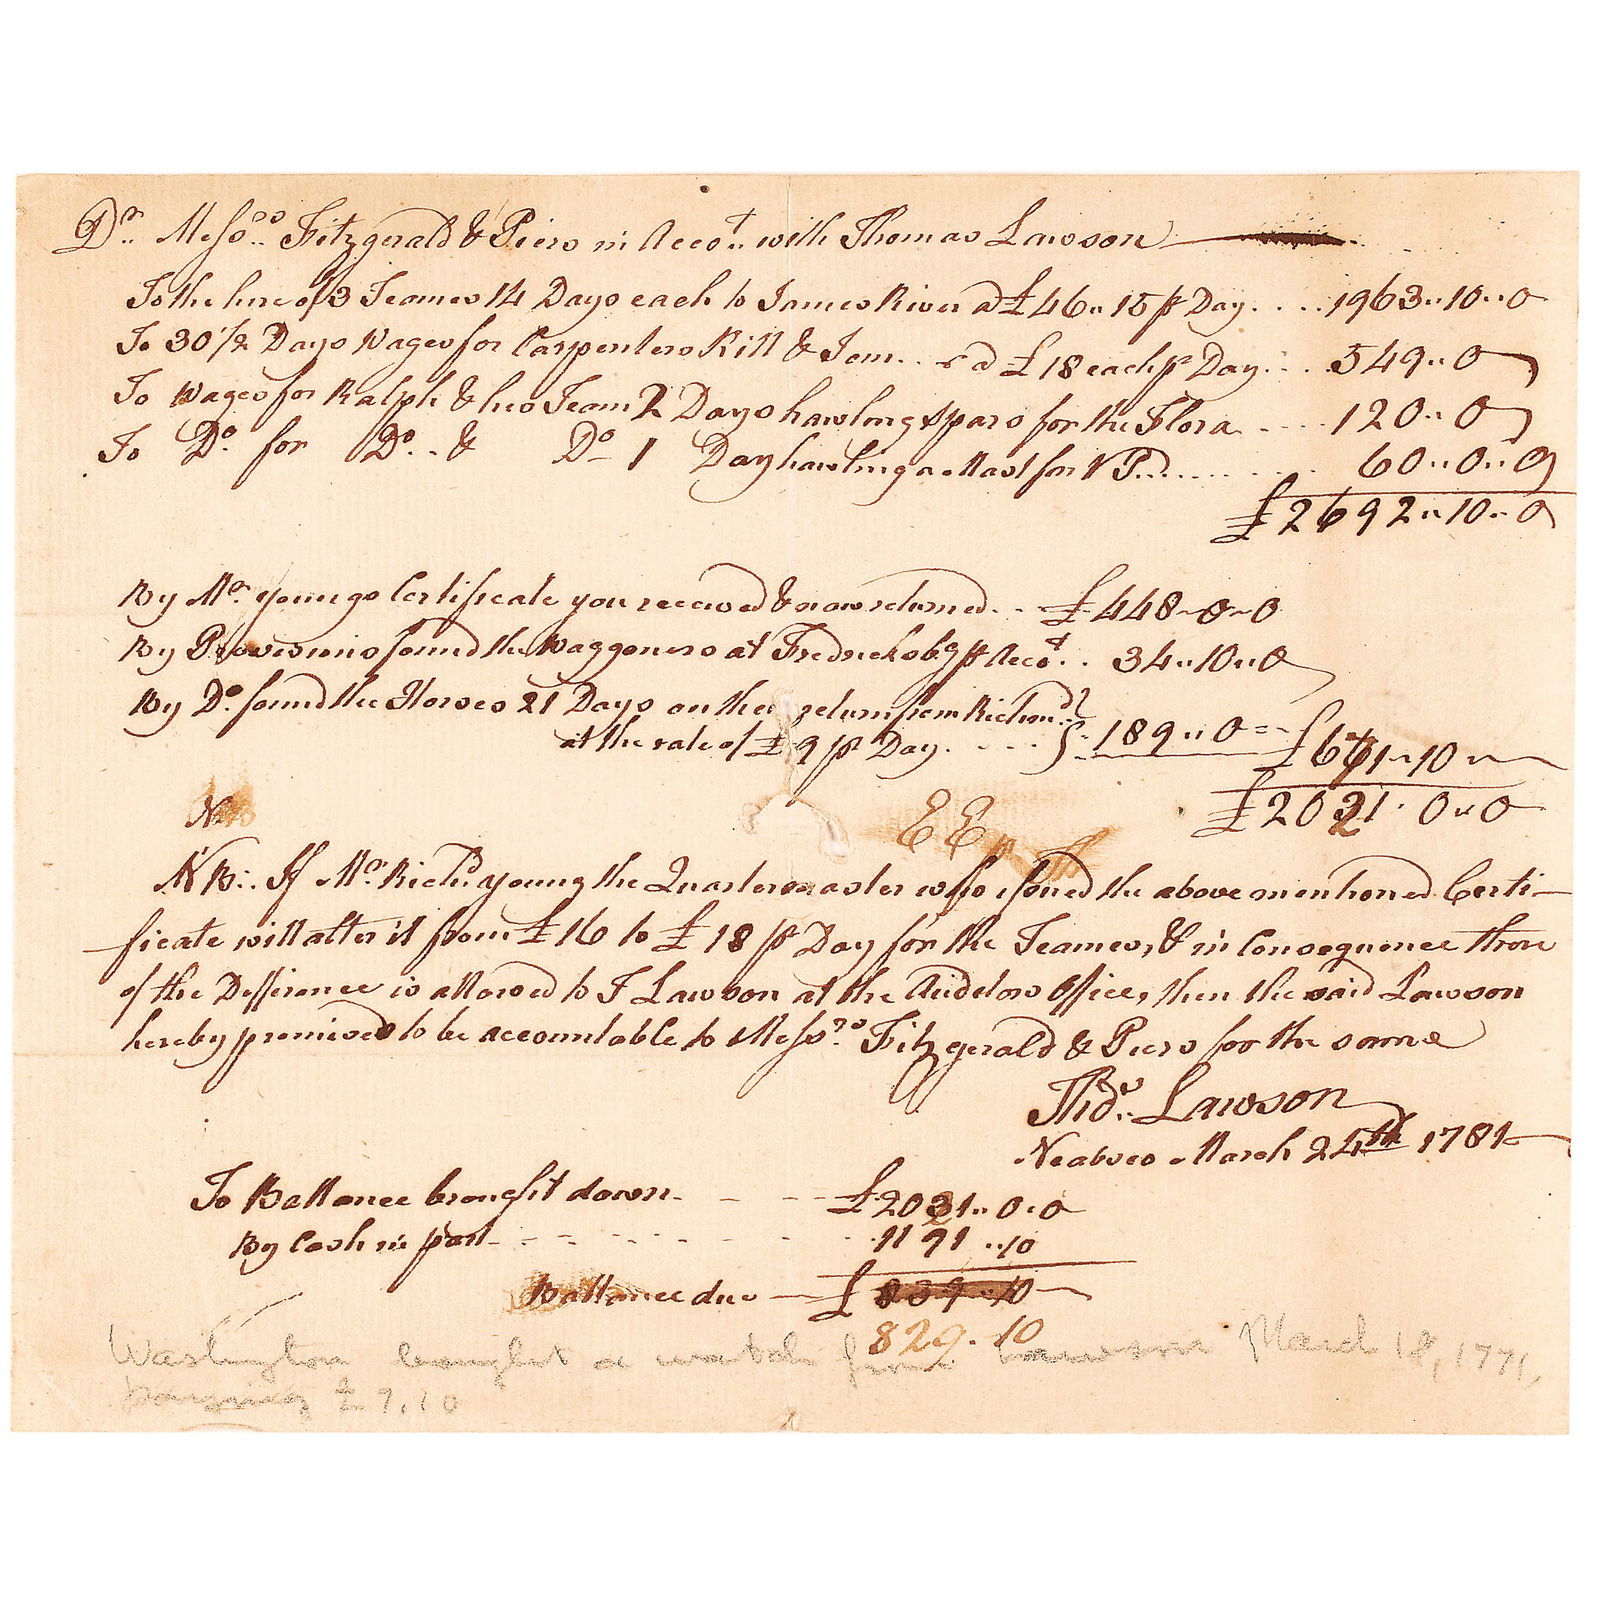 Dr. Messrs. Fitzgerald & Piers in Accot. with Thomas Lawson
To the hire of 3 Teames 14 Days each to James River a £46.. 15 pr Day.... 1963..10..0
To 30 1/2 Days Wages for Carpenters Kill & Tom.. a £18 each pr Day.... 549..0
To Wages for Ralph & his Team 2 Days hawling Spars for the Flora.... 120..0
To Do. for Do.. & Do 1 Day hawling a Mast for ........ 60..0..0
£2692..10..0
By Mr. Youngs Certificate you received & now returned.. £448-0-0
By Provisions found the Waggoners at Fredricksbg pr Accot.. 34..10..0
By Do. found the Horses 21 Days on their return from Richmd
at the rate of £9 pr Day.... 189..0 = £671..10
£2021.0..0
N
EE
NB:. If Mr. Richd. Young the Quartermaster who issued the above mentioned Certi-
ficate will alter it from £16 to £18 pr Day for the Teames, & in Consequence thereof
of the Difference is allowed to T Lawson at the Auditors Office, then the said Lawson
hereby promises to be accountable to Messrs. Fitzgerald & Piers for the same
Thos. Lawson
Neabsco March 24th 1781
To Ballance brought down - - - £2021..0.0
By Cash in part - - - - - - 1191..10
Ballance due — £839..10
829.10
Washington bought a watch from Lawson March 18, 1771,
paying £9.10